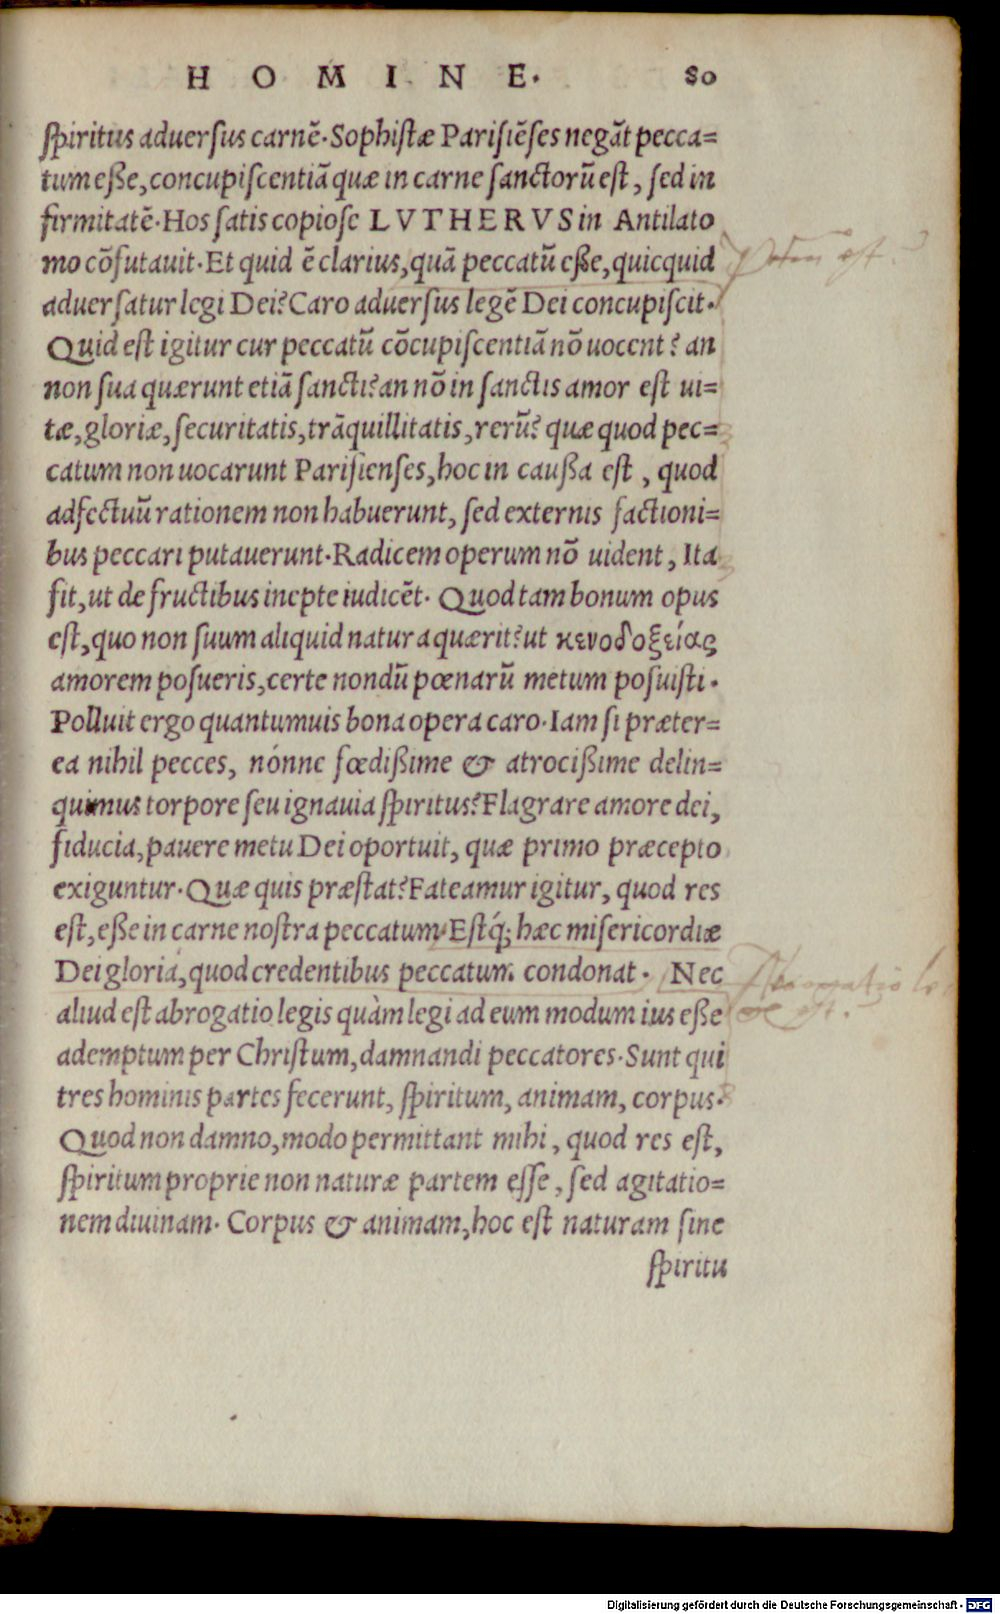 HOMINE. 80
ſpiritus aduerſus carnē. Sophiſtæ Pariſiēſes negāt pecca=
tum eße, concupiſcentiā quæ in carne ſanctorū eſt, ſed in
firmitatē. Hos ſatis copioſe LVTHERVS in Antilato
mo cōfutauit. Et quid ē clarius, quā peccatū eße, quicquid
aduerſatur legi Dei? Caro aduerſus legē Dei concupiſcit.
Quid eſt igitur cur peccatū cōcupiſcentiā nō uocent? an
non ſua quærunt etiā ſancti? an nō in ſanctis amor eſt ui=
tæ, gloriæ, ſecuritatis, trāquillitatis, rerū? quæ quod pec=
catum non uocarunt Pariſienſes, hoc in caußa eſt, quod
adfectuū rationem non habuerunt, ſed externis factioni=
bus peccari putauerunt. Radicem operum nō uident, Ita
fit, ut de fructibus inepte iudicēt. Quod tam bonum opus
eſt, quo non ſuum aliquid natura quærit? ut κενοδοξείας
amorem poſueris, certe nondū pœnarū metum poſuiſti.
Polluit ergo quantumuis bona opera caro. Iam ſi præter=
ea nihil pecces, nónne fœdißime & atrocißime delin=
quimus torpore ſeu ignauia ſpiritus? Flagrare amore dei,
fiducia, pauere metu Dei oportuit, quæ primo præcepto
exiguntur. Quæ quis præſtat? Fateamur igitur, quod res
eſt, eße in carne noſtra peccatum. Eſtq́; hæc miſericordiæ
Dei gloria, quod credentibus peccatum condonat. Nec
aliud eſt abrogatio legis quàm legi ad eum modum ius eße
ademptum per Chriſtum, damnandi peccatores. Sunt qui
tres hominis partes fecerunt, ſpiritum, animam, corpus.
Quod non damno, modo permittant mihi, quod res eſt,
ſpiritum proprie non naturæ partem eſſe, ſed agitatio=
nem diuinam. Corpus & animam, hoc eſt naturam ſine
ſpiritu
Digitalisierung gefördert durch die Deutsche Forschungsgemeinschaft - DFG